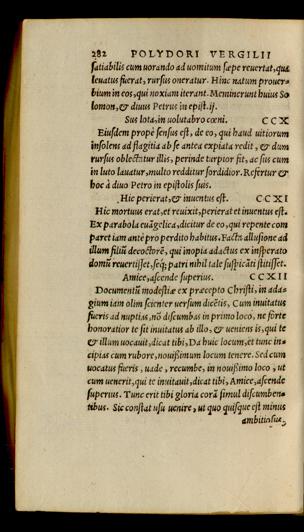 282 POLYDORI VERGILII
satiabilis cum uorando ad uomitum sæpe reuertat, qua
leuatus fuerat, rursus oneratur. Hinc natum prouer-
bium in eos, qui noxiam iterant. Meminerunt huius So
lomon, & diuus Petrus in epist. ij.
Sus lota, in uolutabro cœni. CCX
Eiusdem propè sensus est, de eo, qui haud uitiorum
insolens ad flagitia ab se antea expiata redit, & dum
rursus oblectatur illis, perinde turpior fit, ac sus cum
in luto lauatur, multo redditur sordidior. Refertur &
hoc à diuo Petro in epistolis suis.
Hic perierat, & inuentus est. CCXI
Hic mortuus erat, et reuixit, perierat et inuentus est.
Ex parabola euãgelica, dicitur de eo, qui repente com
paret iam antè pro perdito habitus. Facta allusione ad
illum filiũ decoctorẽ, qui inopia adactus ex insperato
domũ reuertisset, seq; patri nihil tale suspicãti stitisset.
Amice, ascende superius. CCXII
Documentũ modestiæ ex præcepto Christi, in ada-
gium iam olim scienter uersum dicẽtis, Cum inuitatus
fueris ad nuptias, nõ discumbas in primo loco, ne forte
honoratior te sit inuitatus ab illo, & ueniens is, qui te
& illum uocauit, dicat tibi, Da huic locum, et tunc in-
cipias cum rubore, nouissimum locum tenere. Sed cum
uocatus fueris, uade, recumbe, in nouissimo loco, ut
cum uenerit, qui te inuitauit, dicat tibi, Amice, ascende
superius. Tunc erit tibi gloria corã simul discumben-
tibus. Sic constat usu uenire, ut quo quisque est minus
ambitiosus,